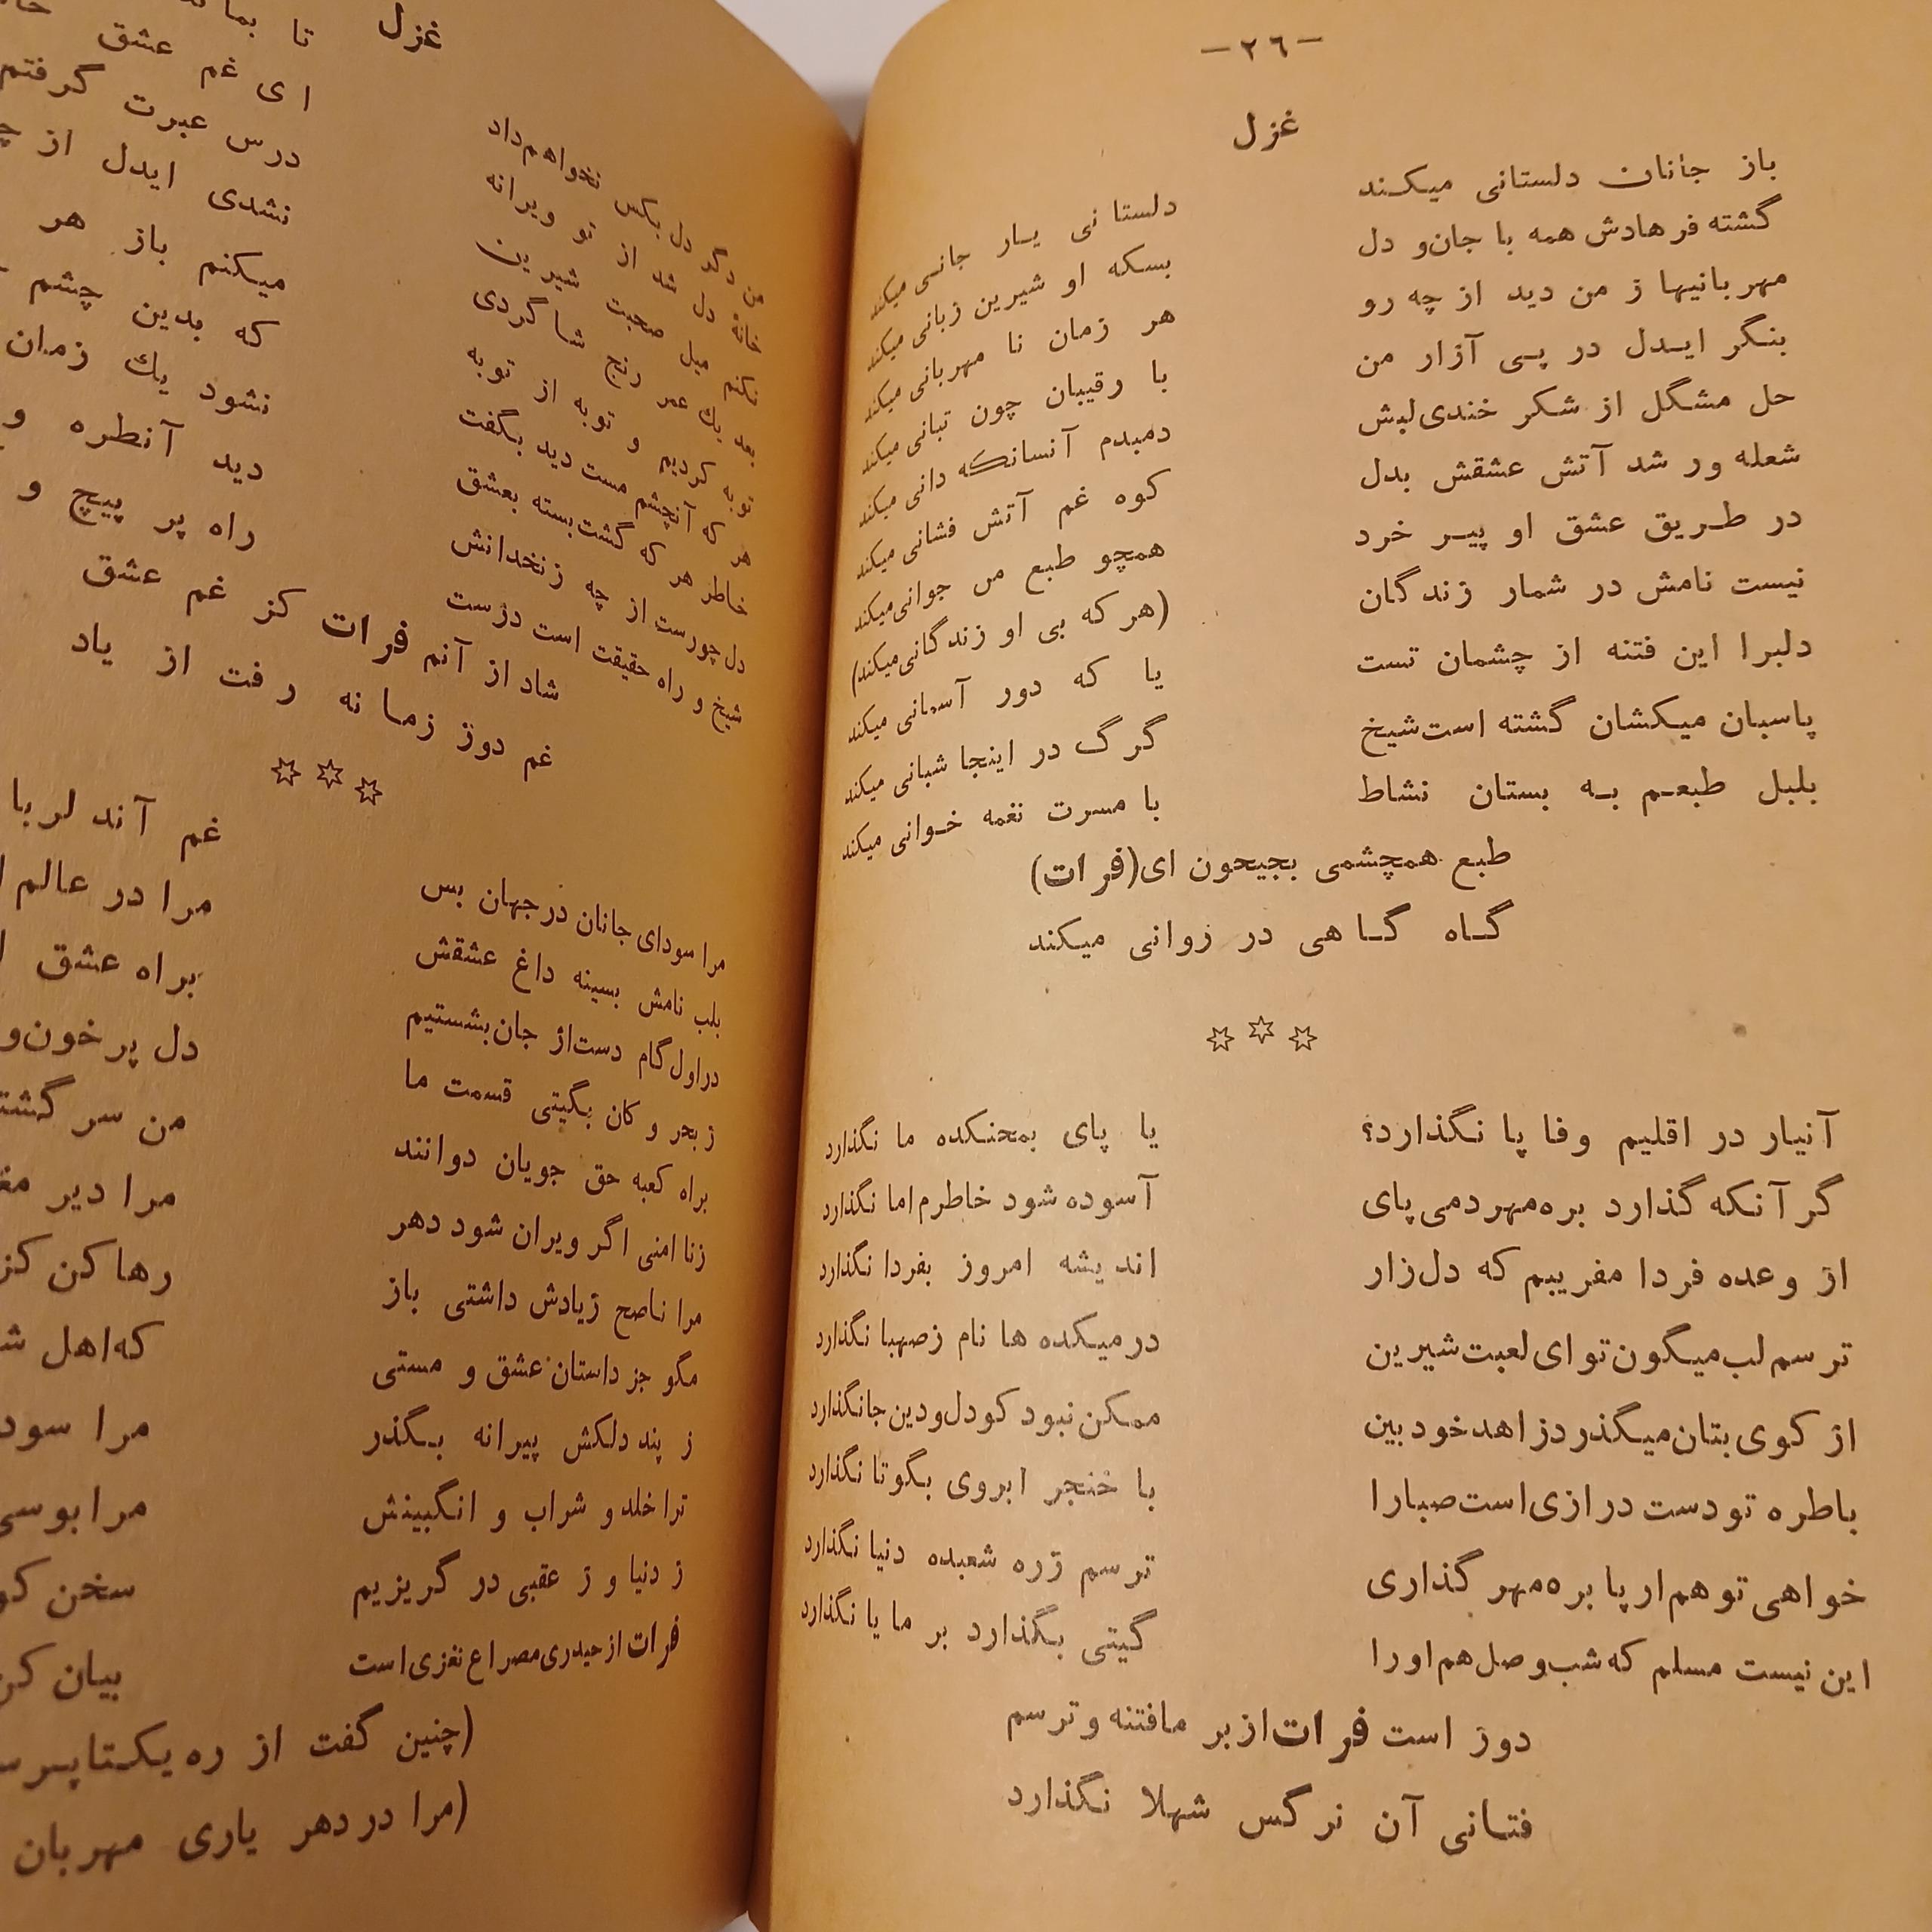 -٢٦-
غزل
باز جانان دلستانی میکند دلستانی یار جانی میکند
گشته فرهادش همه با جان و دل بسکه او شیرین زبانی میکند
مهربانیها ز من دید از چه رو هر زمان نا مهربانی میکند
بنگر ایدل در پی آزار من با رقیبان چون تبانی میکند
حل مشگل از شکر خندی لبش دمبدم آنسانکه دانی میکند
شعله ور شد آتش عشقش بدل کوه غم آتش فشانی میکند
در طریق عشق او پیر خرد همچو طبع من جوانی میکند
نیست نامش در شمار زندگان (هر که بی او زندگانی میکند)
دلبرا این فتنه از چشمان تست یا که دور آسمانی میکند
پاسبان میکشان گشته است شیخ گرگ در اینجا شبانی میکند
بلبل طبعم به بستان نشاط با مسرت نغمه خوانی میکند
طبع همچشمی بجیحون ای (فرات)
گاه گاهی در روانی میکند
آنیار در اقلیم وفا پا نگذارد؟ یا پای بمحنکده ما نگذارد
گر آنکه گذارد بره مهر دمی پای آسوده شود خاطرم اما نگذارد
از وعده فردا مفریبم که دل زار اندیشه امروز بفردا نگذارد
ترسم لب میگون تو ای لعبت شیرین در میکده ها نام ز صهبا نگذارد
از کوی بتان میگذرد زاهد خود بین ممکن نبود کو دل و دین جا نگذارد
با طره تو دست درازی است صبا را با خنجر ابروی بگو تا نگذارد
خواهی تو هم ار پا بره مهر گذاری ترسم زره شعبده دنیا نگذارد
این نیست مسلم که شب وصل هم او را گیتی بگذارد بر ما یا نگذارد
دور است فرات از بر ما فتنه و ترسم
فتانی آن نرگس شهلا نگذارد
غزل
من دگر دل بکس نخواهم داد تا
خانهٔ دل شد از تو ویرانه ای غم عشق
نکنم میل صحبت شیرین درس عبرت گرفتم
بعد یك عمر رنج شاگردی نشدی ایدل از
توبه کردیم و توبه از توبه میکنم باز هر
هر که آنچشم مست دید بگفت که بدین چشم
خاطر هر که گشت بسته بعشق نشود یك زمان
دل چو رست از چه زنخدانش دید آنطره و
شیخ و راه حقیقت است درست راه پر پیچ و
شاد از آنم فرات کز غم عشق
غم دور زمانه رفت از یاد
مرا سودای جانان در جهان بس غم آند لربا
بلب نامش بسینه داغ عشقش مرا در عالم
در اول گام دست از جان بشستیم براه عشق
ز بحر و کان بگیتی قسمت ما دل پر خون و
براه کعبه حق جویان دوانند من سر گشته
ز نا امنی اگر ویران شود دهر مرا دیر
مرا ناصح زیادش داشتی باز رها کن کز
مگو جز داستان عشق و مستی که اهل
ز پند دلکش پیرانه بگذر مرا
ترا خلد و شراب و انگبینش مرا بوسی
ز دنیا و ز عقبی در گریزیم سخن
فرات از حیدری مصراع نغزی است بیان
(چنین گفت از ره
(مرا در دهر یاری مهربان